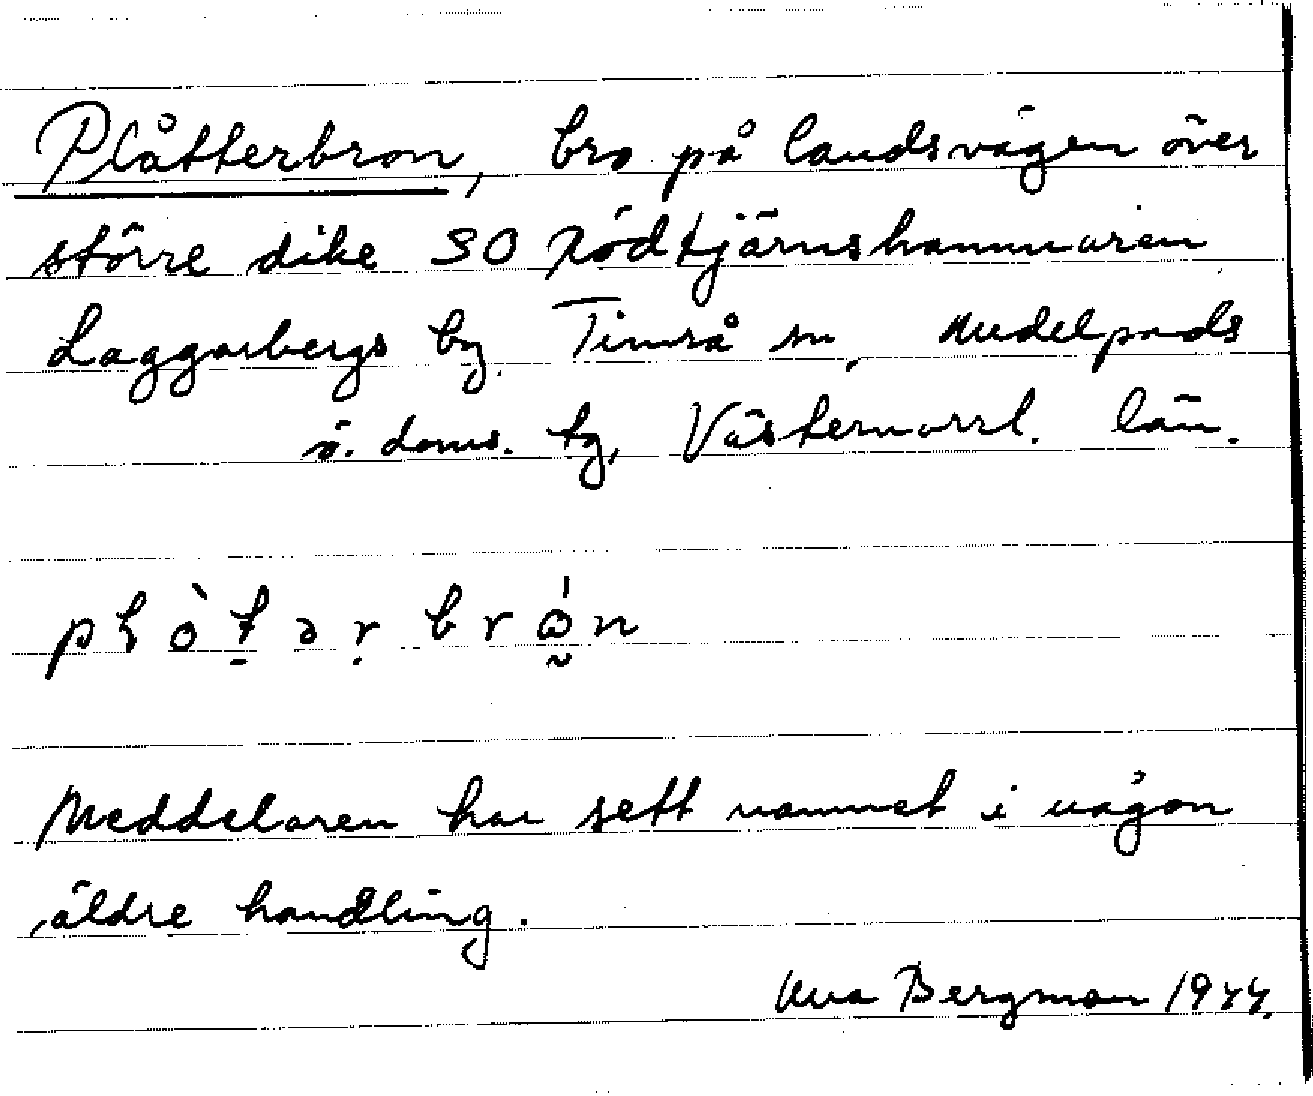 Plåtterbron, bro på landsvägen över
större dike SO Rödtjärnshammaren
Laggarbergs by. Timrå sn, Medelpads
ö. doms. tg, Västernorrl. län.
pɬòt̠əṛbrώ̰n
Meddelaren har sett namnet i någon
äldre handling.
Bergman 1944.